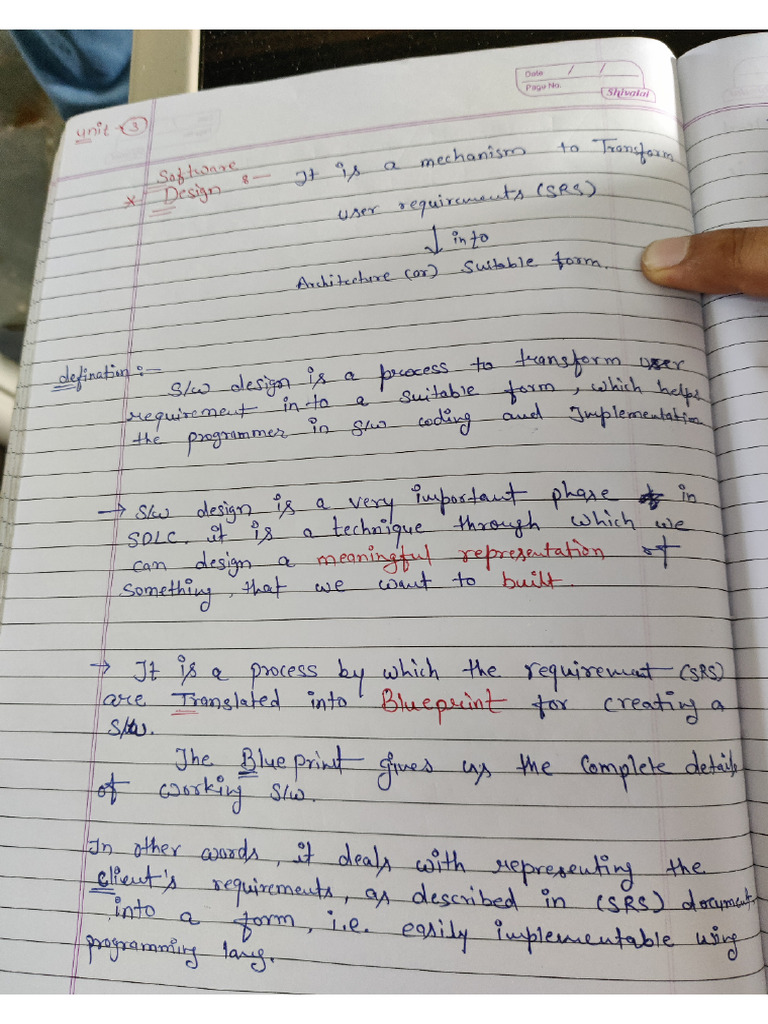 Date / /
Page No.
Shivalal
Unit → 3
Software
* Design :- It is a mechanism to Transform
user requirements (SRS)
↓ into
Architecture (or) suitable form.
defination:-
S/w design is a process to transform user
requirement in to a suitable form, which helps
the programmer in S/w coding and Implementation
→ S/w design is a very important phase in
SDLC. it is a technique through which we
can design a meaningful representation of
something, that we want to built.
→ It is a process by which the requirement (SRS)
are Translated into Blueprint for creating a
S/w.
The Blueprint gives us the complete details
of working S/w.
In other words, it deals with representing the
client's requirements, as described in (SRS) document
into a form, i.e. easily implementable using
programming lang.